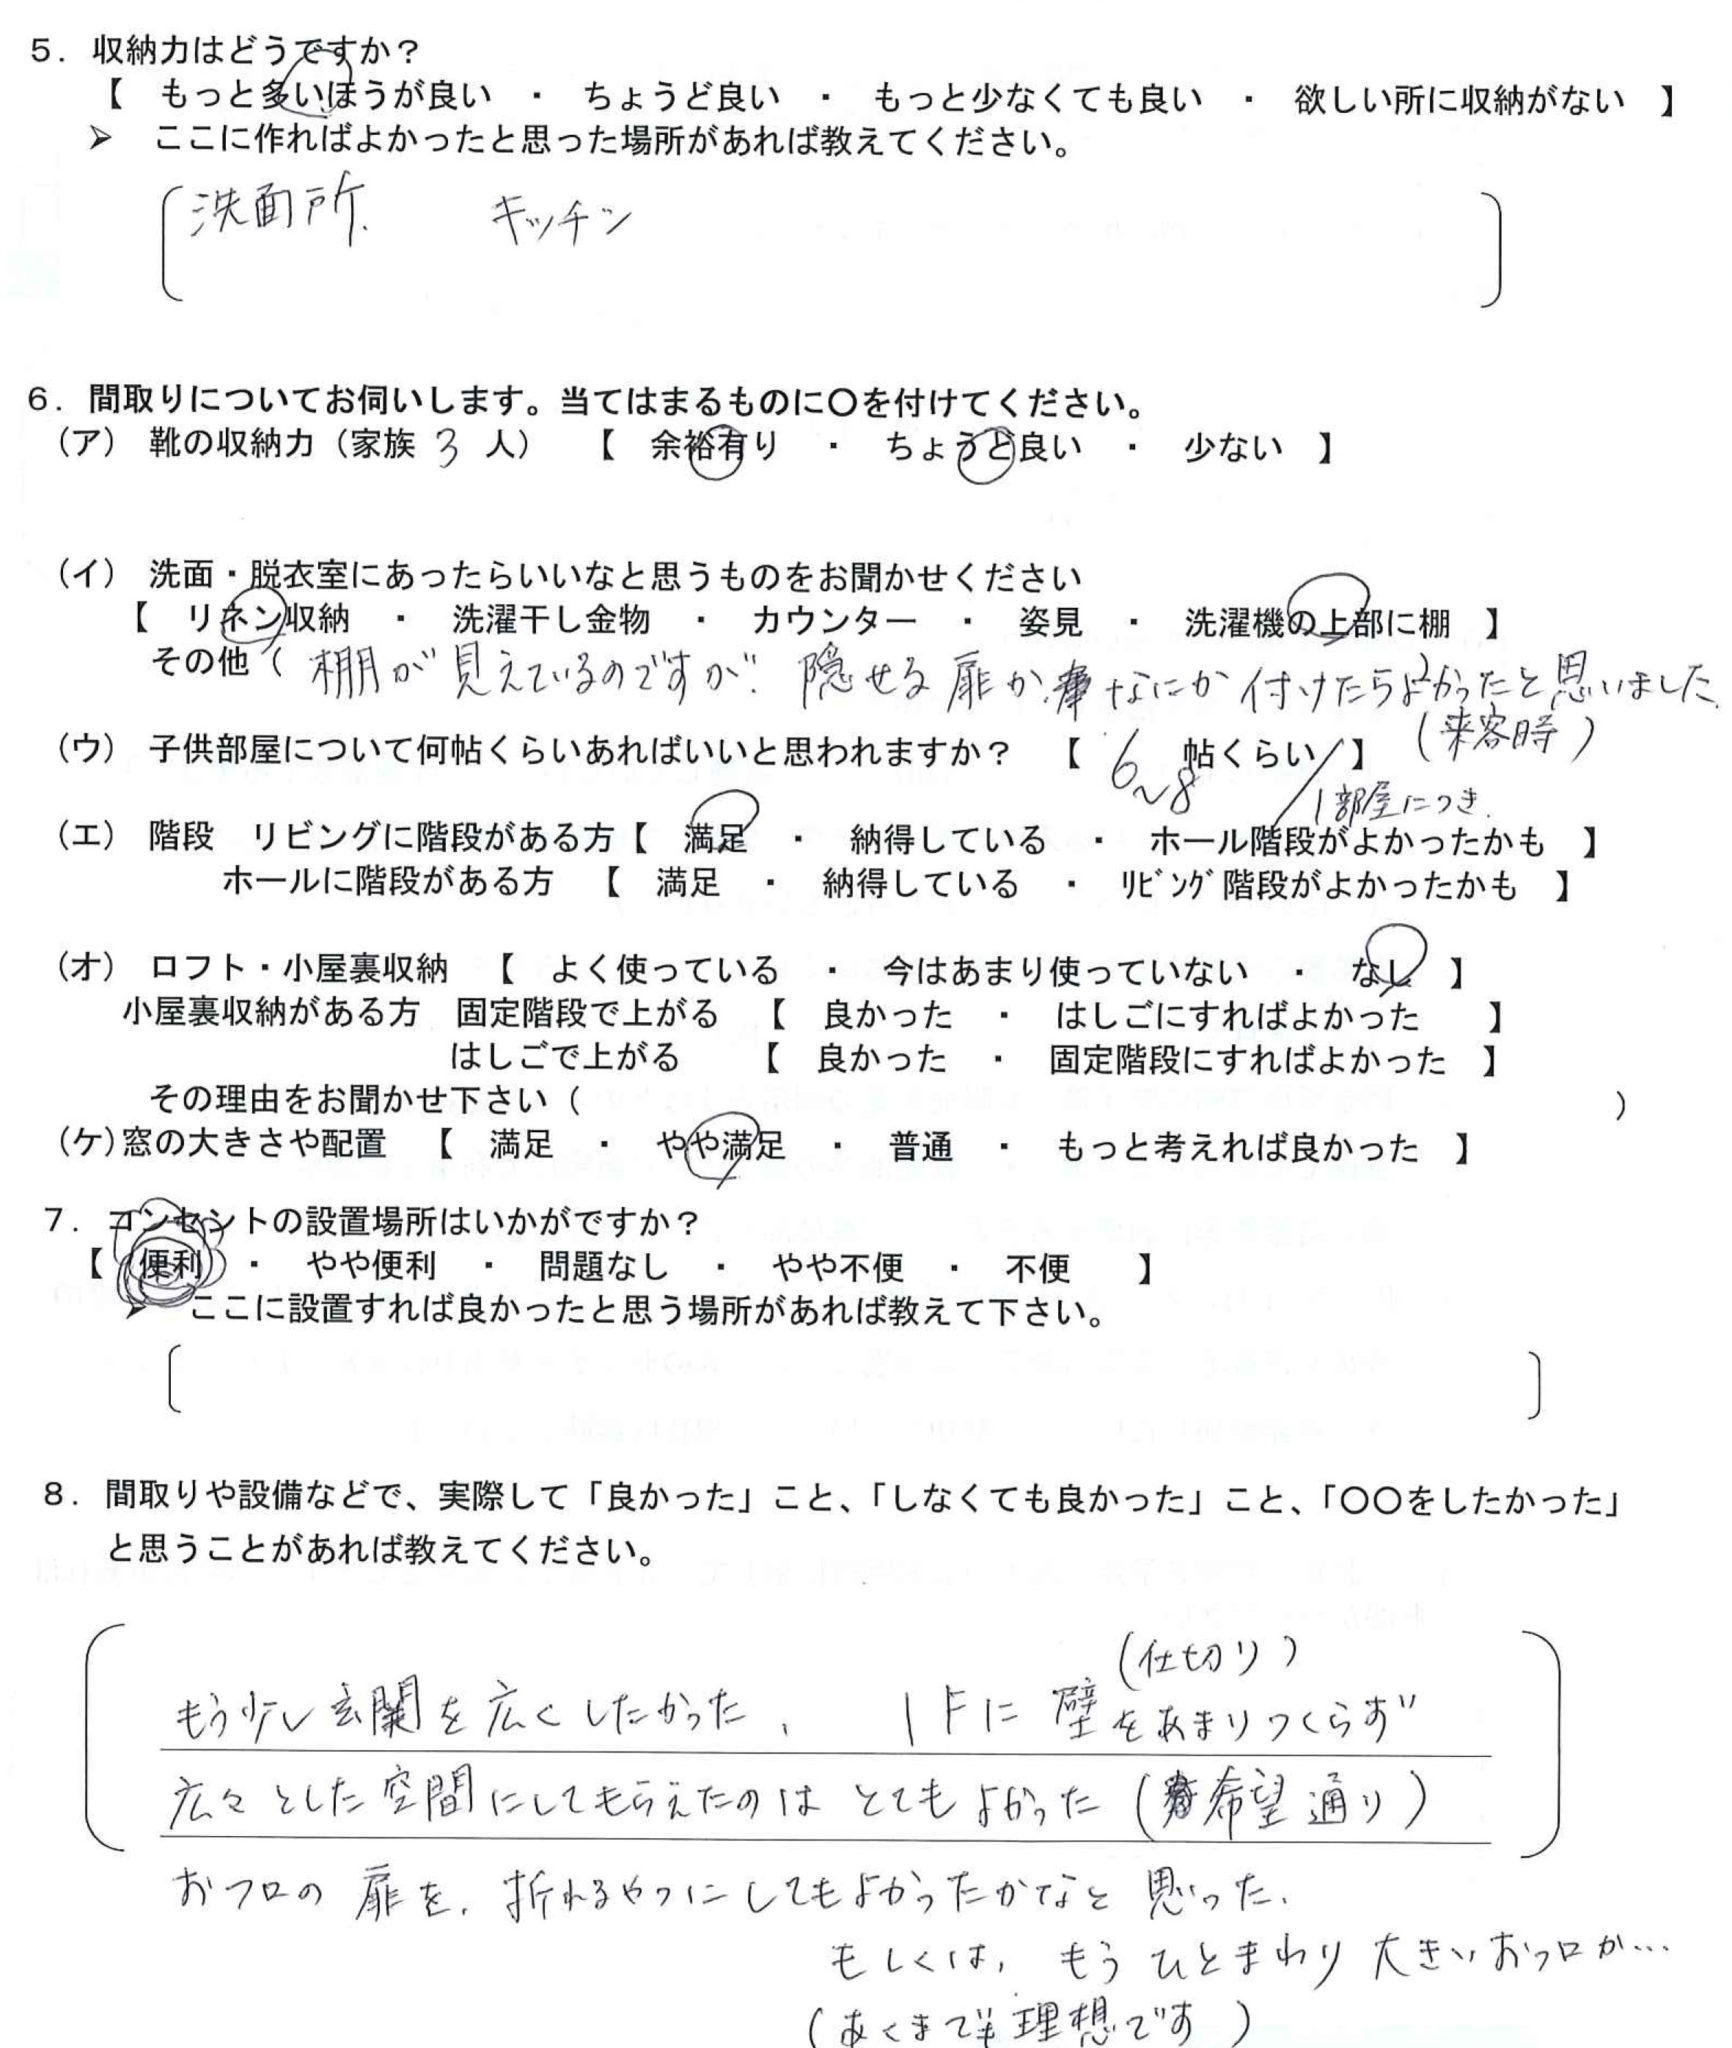 5．収納力はどうですか？
【　もっと多いほうが良い　・　ちょうど良い　・　もっと少なくても良い　・　欲しい所に収納がない　】
➢　ここに作ればよかったと思った場所があれば教えてください。
洗面所.　キッチン
6．間取りについてお伺いします。当てはまるものに〇を付けてください。
（ア）　靴の収納力（家族 3 人）　【　余裕有り　・　ちょうど良い　・　少ない　】
（イ）　洗面・脱衣室にあったらいいなと思うものをお聞かせください
【　リネン収納　・　洗濯干し金物　・　カウンター　・　姿見　・　洗濯機の上部に棚　】
その他（ 棚が見えているのですが. 隠せる扉か、なにか付けたらよかったと思いました.
（来客時）
（ウ）　子供部屋について何帖くらいあればいいと思われますか？　【　6～8　帖くらい／】
1部屋につき.
（エ）　階段　リビングに階段がある方【　満足　・　納得している　・　ホール階段がよかったかも　】
ホールに階段がある方　【　満足　・　納得している　・　ﾘﾋﾞﾝｸﾞ階段がよかったかも　】
（オ）　ロフト・小屋裏収納　【　よく使っている　・　今はあまり使っていない　・　なし　】
小屋裏収納がある方　固定階段で上がる　【　良かった　・　はしごにすればよかった　　】
はしごで上がる　【　良かった　・　固定階段にすればよかった　】
その理由をお聞かせ下さい（　　　）
（ケ）窓の大きさや配置　【　満足　・　やや満足　・　普通　・　もっと考えれば良かった　】
7．コンセントの設置場所はいかがですか？
【　便利　・　やや便利　・　問題なし　・　やや不便　・　不便　　】
➢　ここに設置すれば良かったと思う場所があれば教えて下さい。
8．間取りや設備などで、実際して「良かった」こと、「しなくても良かった」こと、「〇〇をしたかった」
と思うことがあれば教えてください。
（仕切り）
もう少し玄関を広くしたかった、　1Fに壁をあまりつくらず
広々とした空間にしてもらえたのはとてもよかった（希望通り）
おフロの扉を、折れるやつにしてもよかったかなと思った.
もしくは、もうひとまわり大きいおフロか…
（あくまでも理想です）